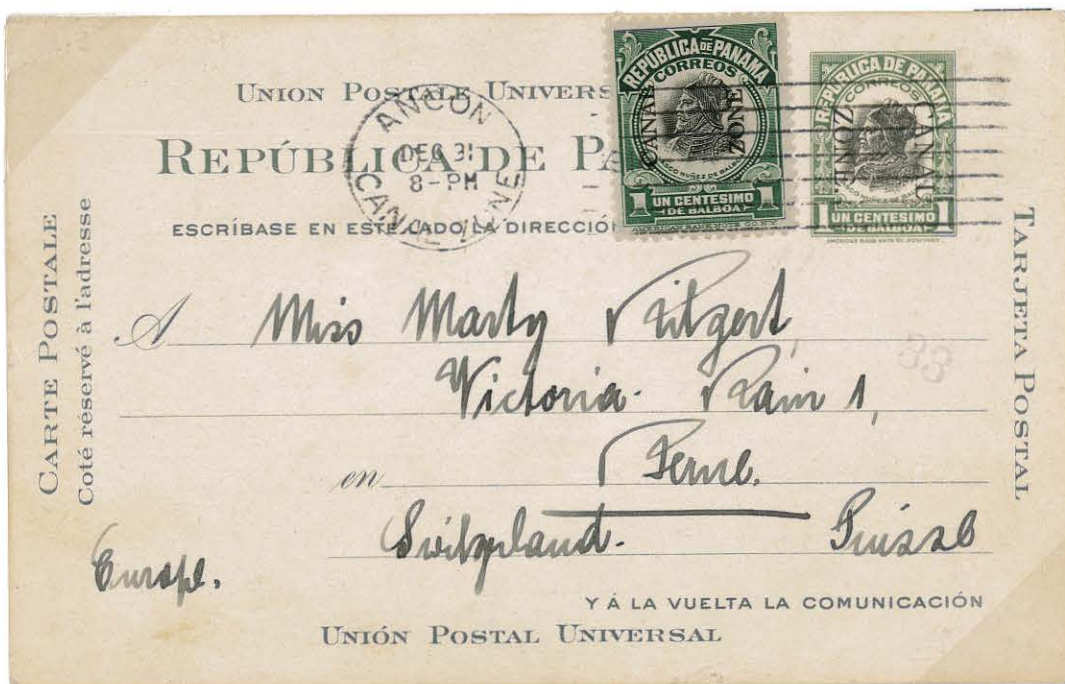 UNION POSTALE UNIVERS
REPÚBLICA DE PA
ESCRÍBASE EN ESTE LADO LA DIRECCIÓN
ANCON
DEC 31
8-PM
CANAL ZONE
REPÚBLICA DE PANAMA
CORREOS
CANAL
ZONE
VASCO NUÑEZ DE BALBOA
1 UN CENTESIMO 1
DE BALBOA
REPÚBLICA DE PANAMA
CORREOS
CANAL
ZONE
1 UN CENTESIMO 1
DE BALBOA
CARTE POSTALE
Coté réservé à l'adresse
TARJETA POSTAL
A Miss Marty
33
Victoria Rain 1,
en Berne.
Switzerland. Suisse
Europe.
Y Á LA VUELTA LA COMUNICACIÓN
UNIÓN POSTAL UNIVERSAL